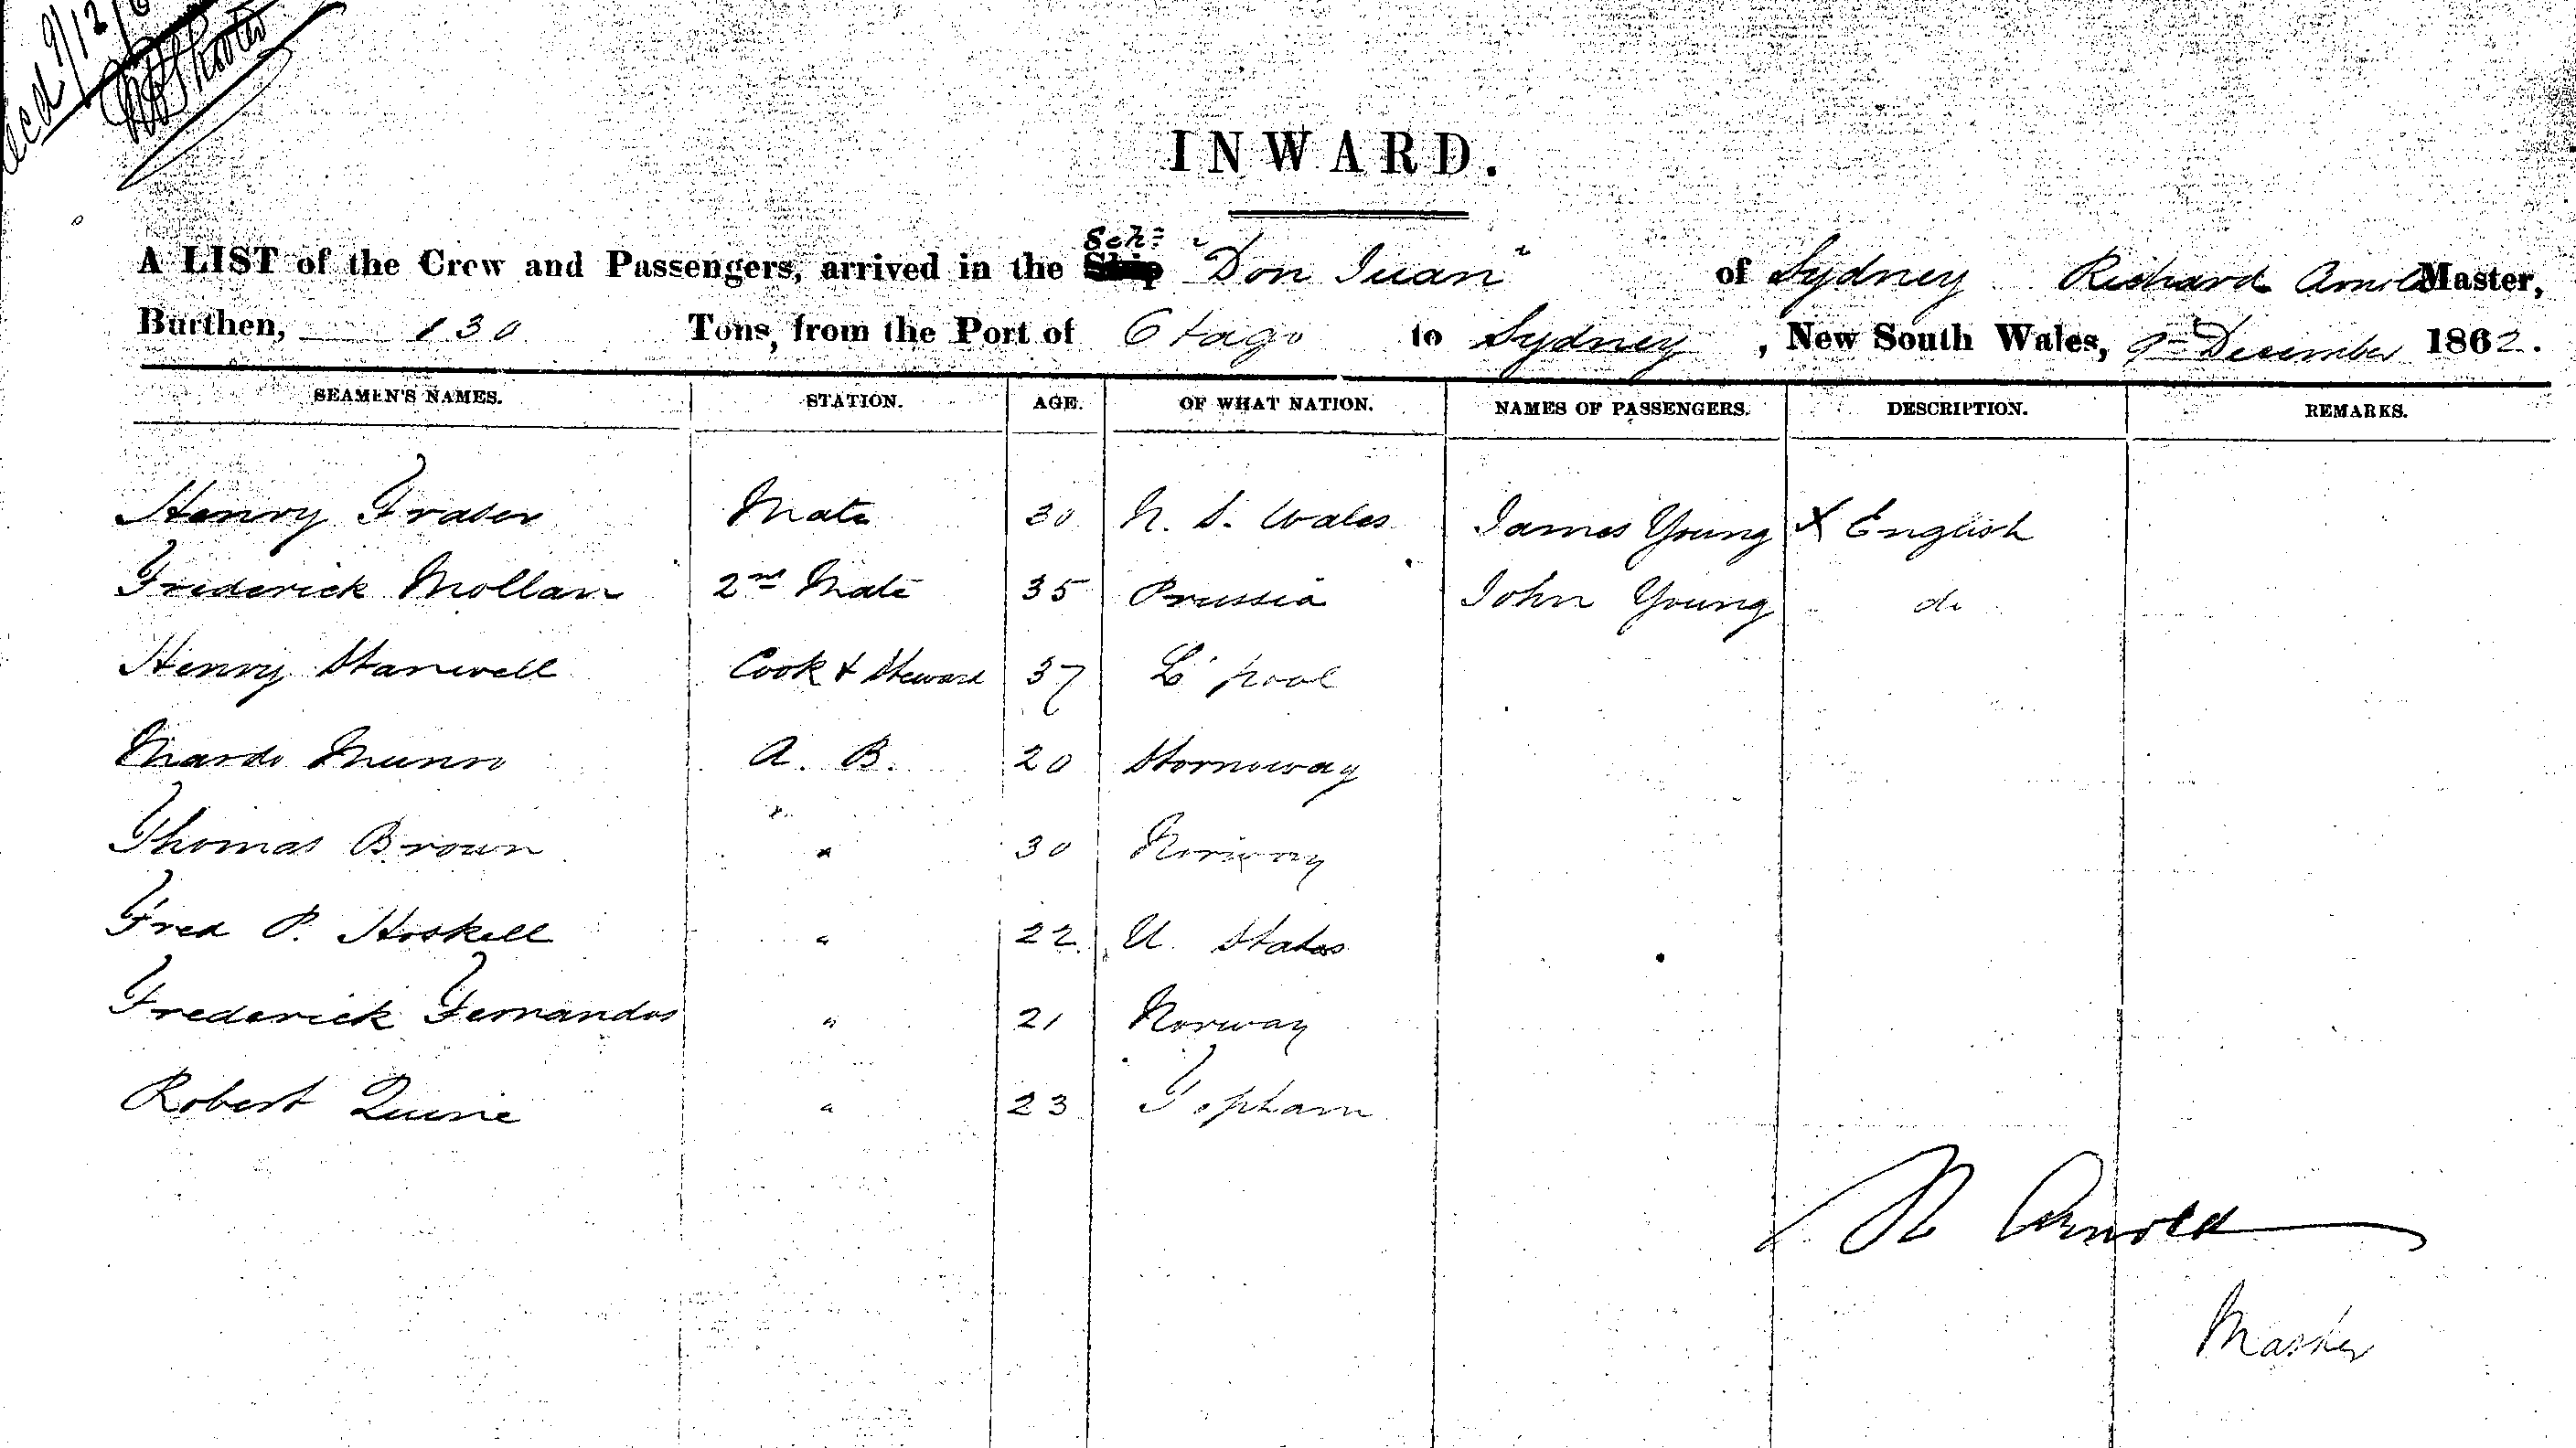 recd 9/12/6
INWARD.
A LIST of the Crew and Passengers, arrived in the Sch: Ship "Don Juan" of Sydney Richard Arnold Master,
Burthen, 130 Tons, from the Port of Otago to Sydney, New South Wales, 9th December 1862.
SEAMEN'S NAMES. STATION. AGE. OF WHAT NATION. NAMES OF PASSENGERS. DESCRIPTION. REMARKS.
Henry Fraser Mate 30 N. S. Wales James Young X English
Frederick Mollan 2nd Mate 35 Prussia John Young do
Henry Stanwell Cook & Steward 37 L'pool
Munro A. B. 20 Stornoway
Thomas Brown " 30 Norway
Fred P. Hoskell " 22 U. States
Frederick Fernandos " 21 Norway
Robert Quine " 23 Topham
R Arnold
Master